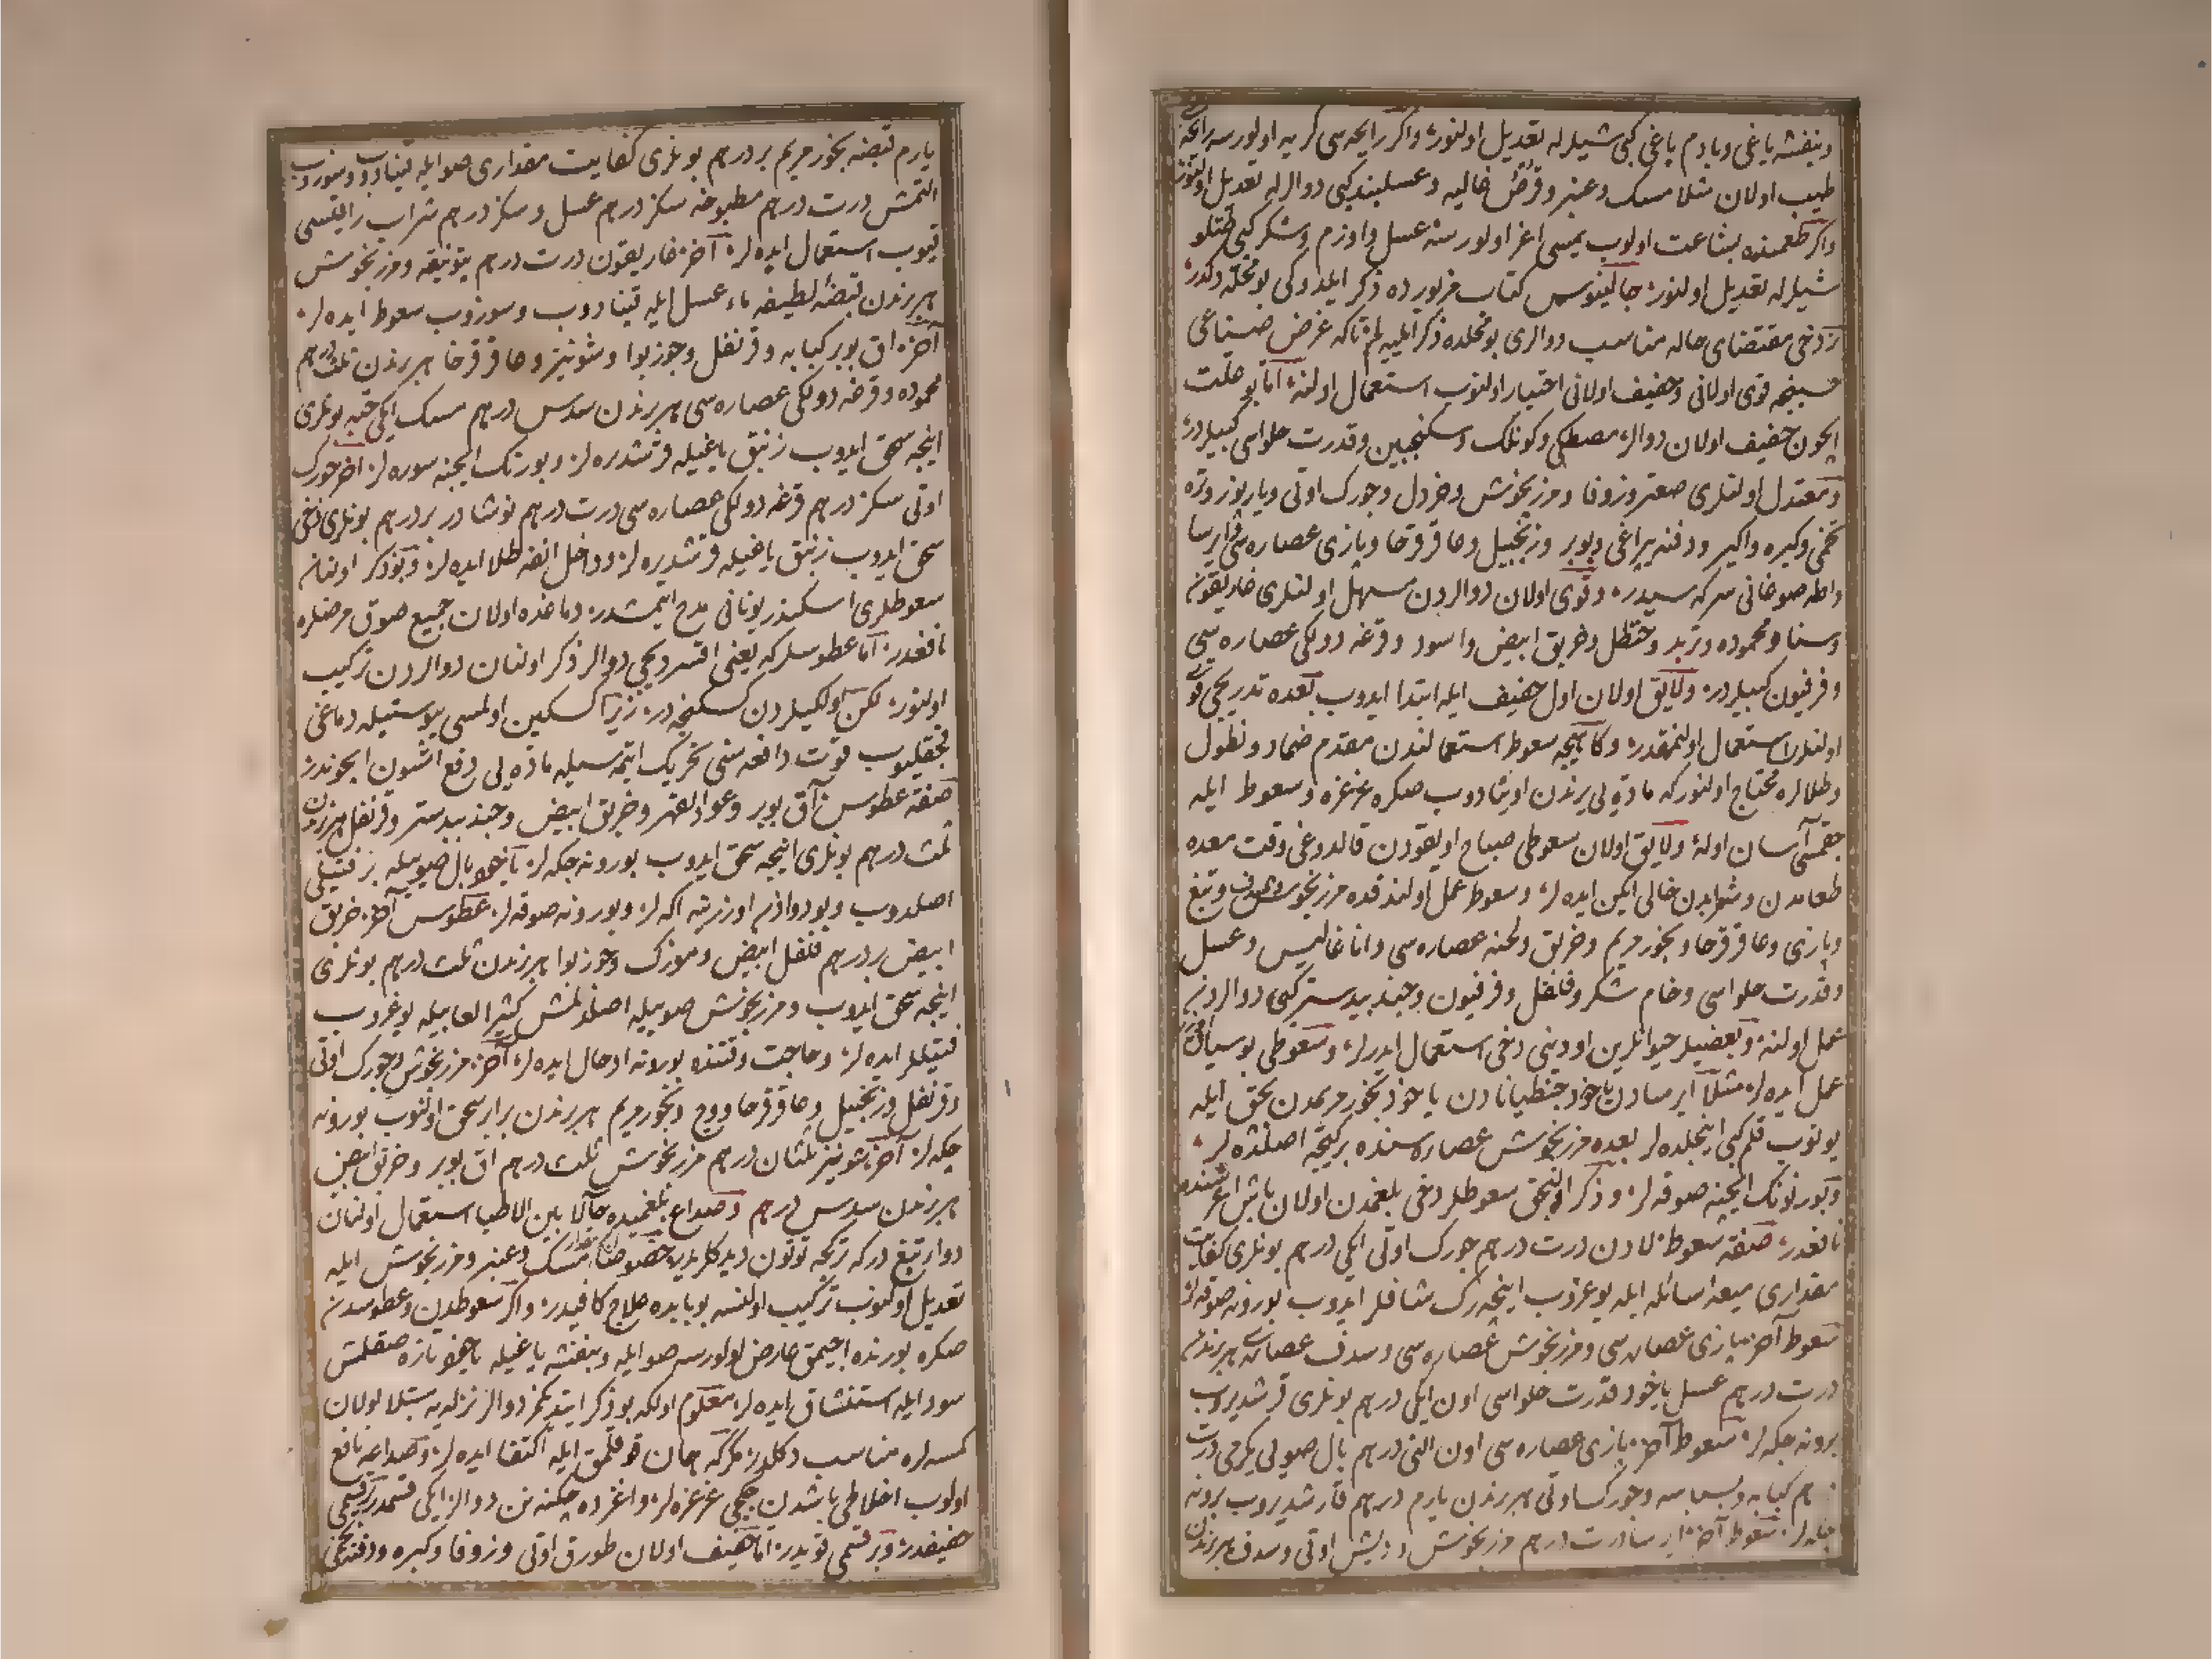 وبنفشه ياغى وبادم ياغى كبى شيلرله تعديل اولنور واكر رايحه سى كريه اولورسه رايحه سى
طيب اولان مثلا مسك وعنبر وقرص غاليه وعسلبند كبى دوالرله تعديل اولنور
واكر طعمنده بشاعت اولوب يمسى اغر اولورسه عسل واوزم وشكر كبى طتلو
شيلرله تعديل اولنور جالينوس كتاب مزبورده ذكر ايلدوكى بو محلده دكدر
بز دخى مقتضاى حاله مناسب دوالرى بو محلده ذكر ايليه لم تاكه غرض صناعى
حسبنجه قوى اولانى وخفيف اولانى اختيار اولنوب استعمال اولنه اما بو علت
ايچون خفيف اولان دوالر مصطكى وكونلك وسكنجبين وقدرت حلواسى كبيلردر
ومعتدل اولنلرى صعتر وزوفا ومرزنجوش وخردل وچورك اوتى
تخمى وكبره واكير ودفنه يپراغى وبوبر وزنجبيل وعاقرقرحا وپازى عصاره سى وايرسا
واطه صوغانى سركه سيدر وقوى اولان دوالردن مسهل اولنلرى غاريقون
وسنا ومحموده وتربد وحنظل وخربق ابيض واسود وقرغه دولكى عصاره سى
وفرفيون كبيلردر ولايق اولان اول خفيف ايله ابتدا ايدوب بعده تدريجى قوى
اولنلر استعمال اولنمقدر وكاهيجه سعوط استعمالندن مقدم ضماد ونطول
وطلالره محتاج اولنور كه ماده يى يرندن اوينادوب صكره غرغره وسعوط ايله
چقمسى آسان اوله ولايق اولان سعوطى صباح اويقودن قالدوغى وقت معده
طعامدن وشرابدن خالى ايكن ايده لر وسعوط عمل اولندقده مرزنجوش وتبغ
وپازى وعاقرقرحا وبخور مريم وخربق ولحنه عصاره سى واناغاليس وعسل
وقدرت حلواسى وخام شكر وفلفل وفرفيون وجندبيدستر كبى دوالردن
عمل اولنه وبعضيلر حيوانلرين اودينى دخى استعمال ايدرلر وسعوطى بو سياق اوزره
عمل ايده لر مثلا ايرسادن ياخود جنطيانادن ياخود بخور مريمدن بچق ايله
يونوب قلم كبى اينجلده لر بعده مرزنجوش عصاره سنده بر كيجه اصلده لر
وبورنونك ايچنه صوقه لر وذكر اولنجق سعوطلر دخى بلغمدن اولان باش اغريسنده
نافعدر صنفه سعوط لادن درت درهم چورك اوتى ايكى درهم بونلرى كفايت
مقدارى ميعه سائله ايله يوغروب اينجه رك شافلر ايدوب بورونه صوقه لر
سعوط آخر پازى عصاره سى ومرزنجوش عصاره سى وسدف عصاره سى هر برندن
درت درهم عسل ياخود قدرت حلواسى اون ايكى درهم بونلرى قرشديروب
برونه چكه لر سعوط آخر پازى عصاره سى اون التى درهم بال صويى يكرمى درت
درهم كبابه وبسباسه وچورك اوتى هر برندن يارم درهم قارشديروب برونه
چكه لر سعوط آخر ايرسا درت درهم مرزنجوش اوتى وسدف هر برندن
يارم قبضه بخور مريم بر درهم بونلرى كفايت مقدارى صو ايله قينادوب وسوزوب
التمش درت درهم مطبوخه سكز درهم عسل وسكز درهم شراب راقيسى
قيوب استعمال ايده لر آخر غاريقون درت درهم بتونيقه ومرزنجوش
هر برندن قبضه لطيفه ماء عسل ايله قينادوب وسوزوب سعوط ايده لر
آخر اق بوبر كبابه وقرنفل وجوز بوا وشونيز وعاقرقرحا هر برندن ثلث درهم
محموده وقرغه دولكى عصاره سى هر برندن سدس درهم مسك ايكى حبه بونلرى
اينجه سحق ايدوب زنبق ياغيله قرشدره لر وبورنك ايچنه سوره لر آخر چورك
اوتى سكز درهم قرغه دولكى عصاره سى درت درهم نوشادر بر درهم بونلرى دخى
سحق ايدوب زنبق ياغيله قرشديره لر وداخل انفه طلا ايده لر وبو ذكر اولنان
سعوطلرى اسكندر يونانى مدح ايتمشدر دماغده اولان جميع صوق مرضلره
نافعدر اما عطوسلر كه يعنى اقسردجى دوالر ذكر اولنان دوالردن تركيب
اولنور لكن اولكيلردن كسكنجه در زيرا كسكين اولمسى يبوستيله دماغى
قوت دافعه سنى تحريك ايتمسيله ماده يى دفع اتسون ايچوندر
صنفه عطوس آق بوبر وعود القهر وخربق ابيض وجندبيدستر وقرنفل هر برندن
ثلث درهم بونلرى اينجه سحق ايدوب بورونه چكه لر ياخود بال صوييله بر فتيلى
اصلدوب وبو دوادن اوزرينه اكه لر وبورونه صوقه لر عطوس آخر خربق
ابيض بر درهم فلفل ابيض ومويزك وجوز بوا هر برندن ثلث درهم بونلرى
اينجه سحق ايدوب ومرزنجوش صوييله اصلدلمش كثيرا لعابيله يوغروب
فتيللر ايده لر وحاجت وقتنده بورونه ادخال ايده لر آخر مرزنجوش وچورك اوتى
وقرنفل وزنجبيل وعاقرقرحا ووج وبخور مريم هر برندن برابر سحق اولنوب بورونه
چكه لر آخر شونيز ثلثان درهم مرزنجوش ثلث درهم اق بوبر وخربق ابيض
هر برندن سدس درهم وصداع بلغميده حالا بين الاطبا استعمال اولنان
دوا تبغدر كه تركجه توتون ديدكلريدر خصوصا مسك وعنبر ومرزنجوش ايله
تعديل اولنوب تركيب اولنسه بو بابده علاج كافيدر واكر سعوطدن وعطوسدن
صكره بورنده اجيمق عارض اولورسه صو ايله وبنفشه ياغيله ياخود تازه صغلمش
سود ايله استنشاق ايده لر معلوم اوله كه بو ذكر ايتديكمز دوالر نزله يه مبتلا اولان
كمسه لره مناسب دكلدر مكر كه همان قوقلمق ايله اكتفا ايده لر وصداعه نافع
اولوب اخلاطى باشدن چكجى غرغره لر واغزده چكنه نن دوالر ايكى قسمدر بر قسمى
خفيفدر وبر قسمى قويدر اما خفيف اولان طورق اوتى وزوفا وكبره ودفنه تخمى